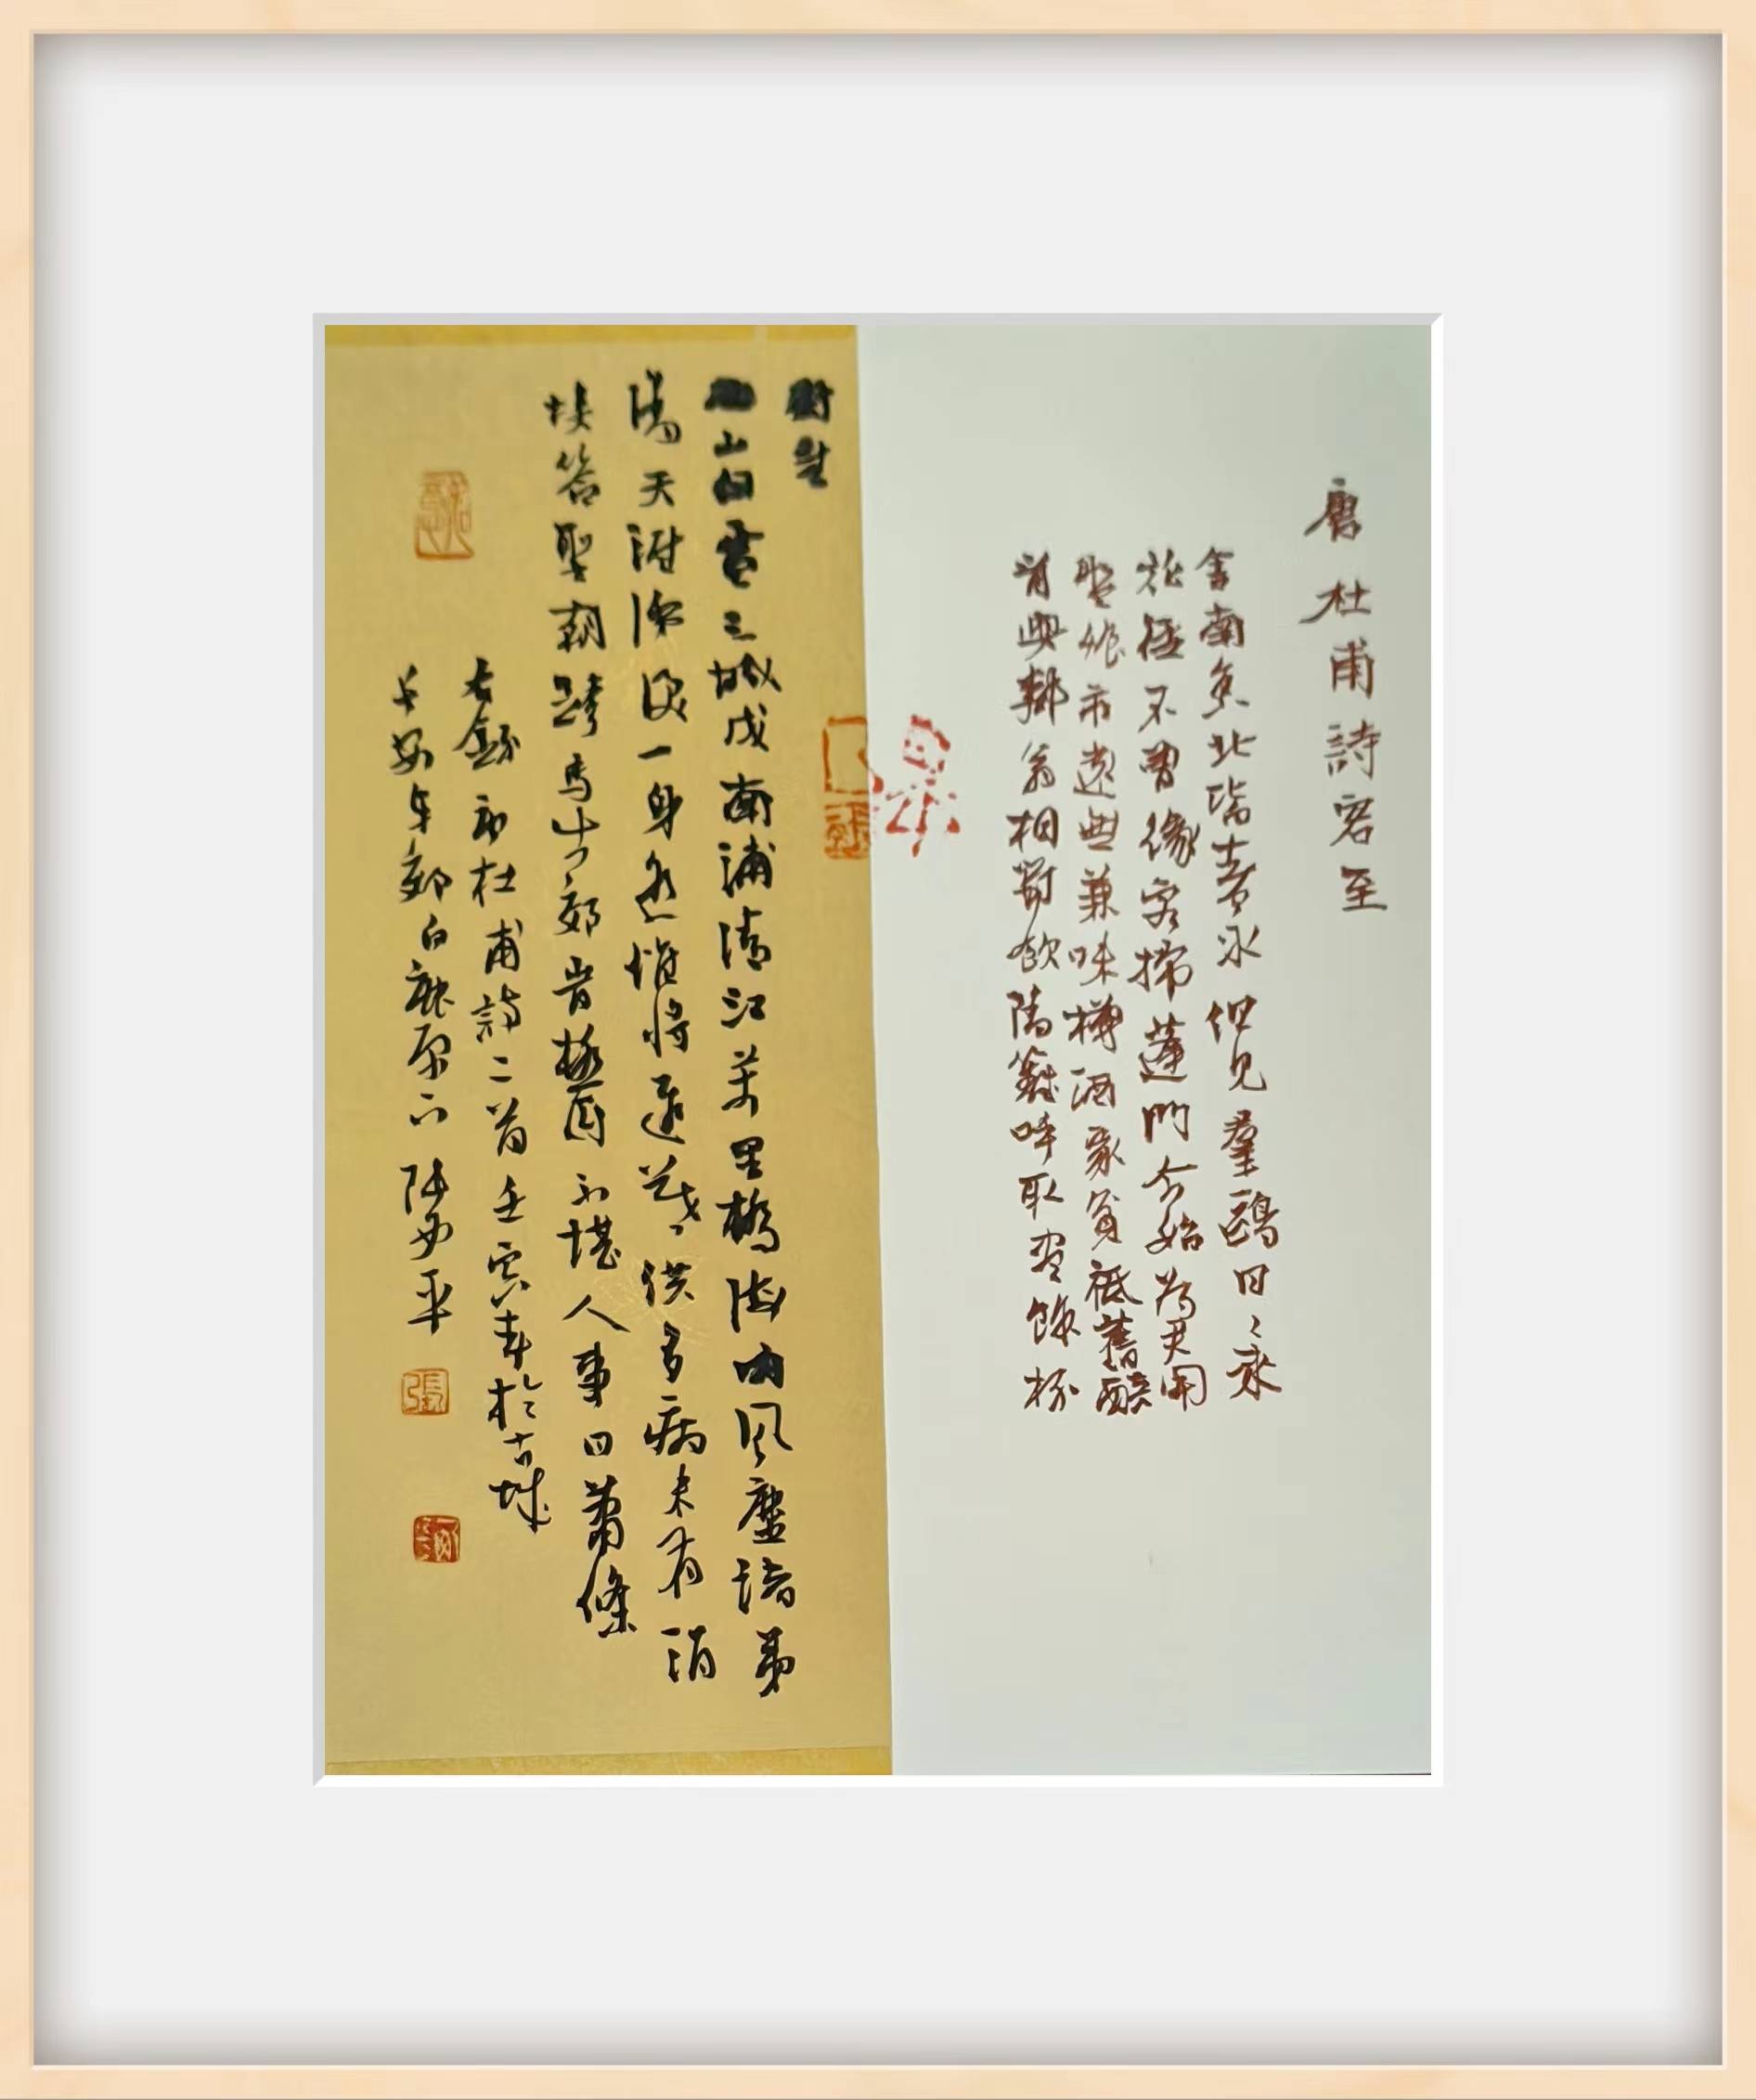 唐杜甫詩客至
舍南舍北皆春水但見羣鷗日々來
花徑不曾緣客掃蓬門今始為君開
盤飧市遠無兼味樽酒家貧祗舊醅
肯與鄰翁相對飲隔籬呼取盡餘杯
野望
西山白雪三城戍南浦清江萬里橋海內風塵諸弟
隔天涯涕淚一身遙惟將遲暮供多病未有涓
埃答聖朝跨馬出郊時極目不堪人事日蕭條
右錄杜甫詩二首壬寅春於古城
長安東郊白鹿原下平
張